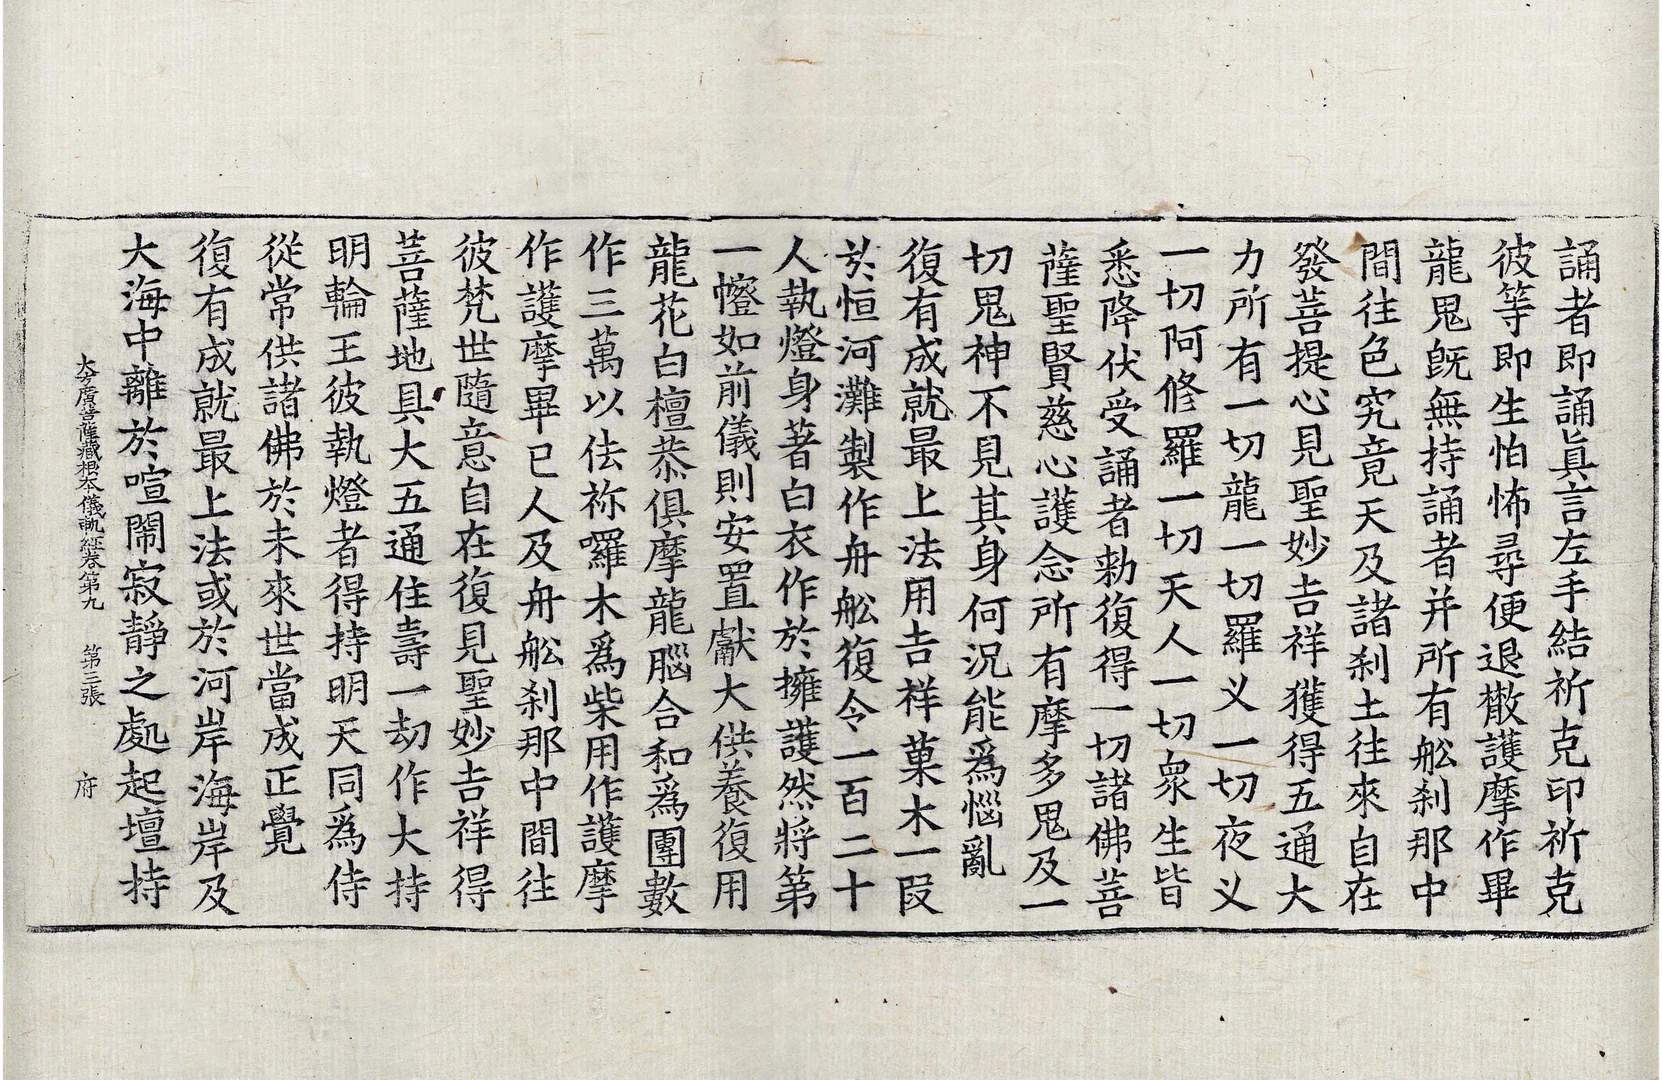 誦者即誦眞言左手結祈克印祈克
彼等即生怕怖尋便退撒護摩作畢
龍鬼旣無持誦者并所有舩刹那中
間往色究竟天及諸刹土往來自在
發菩提心見聖妙吉祥獲得五通大
力所有一切龍一切羅义一切夜义
一切阿修羅一切天人一切衆生皆
悉降伏受誦者勑復得一切諸佛菩
薩聖賢慈心護念所有摩多鬼及一
切鬼神不見其身何況能爲惱亂
復有成就最上法用吉祥菓木一段
於恒河灘製作舟舩復令一百二十
人執燈身著白衣作於擁護然將第
一燈如前儀則安置獻大供養復用
龍花白檀恭俱摩龍腦合和爲團數
作三萬以佉祢囉木爲柴用作護摩
作護摩畢已人及舟舩刹那中間往
彼梵世隨意自在復見聖妙吉祥得
菩薩地具大五通住壽一劫作大持
明輪王彼執燈者得持明天同爲侍
從常供諸佛於未來世當成正覺
復有成就最上法或於河岸海岸及
大海中離於喧閙寂靜之處起壇持
大方廣菩薩藏根本儀軌經卷第九 第三張 府